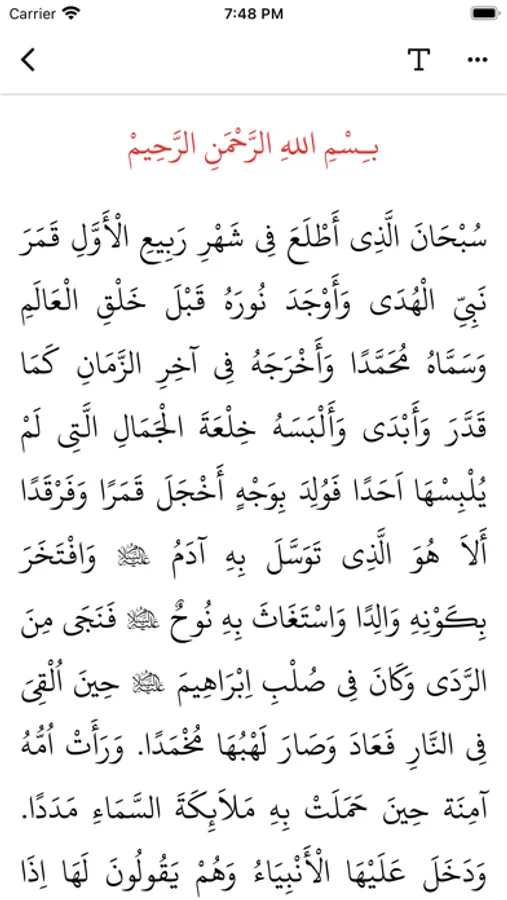 Carrier 7:48 PM
T
بِسْمِ اللهِ الرَّحْمَنِ الرَّحِيمْ
سُبْحَانَ الَّذِى أَطْلَعَ فِى شَهْرِ رَبِيعِ الْأَوَّلِ قَمَرَ
نَبِيِّ الْهُدَى وَأَوْجَدَ نُورَهُ قَبْلَ خَلْقِ الْعَالَمِ
وَسَمَّاهُ مُحَمَّدًا وَأَخْرَجَهُ فِى آخِرِ الزَّمَانِ كَمَا
قَدَّرَ وَأَبْدَى وَأَلْبَسَهُ خِلْعَةَ الْجَمَالِ الَّتِى لَمْ
يُلْبِسْهَا اَحَدًا فَوُلِدَ بِوَجْهٍ أَخْجَلَ قَمَرًا وَفَرْقَدًا
أَلاَ هُوَ الَّذِى تَوَسَّلَ بِهِ آدَمُ عليه السلام وَافْتَخَرَ
بِكَوْنِهِ وَالِدًا وَاسْتَغَاثَ بِهِ نُوحٌ عليه السلام فَنَجَى مِنَ
الرَّدَى وَكَانَ فِى صُلْبِ اِبْرَاهِيمَ عليه السلام حِينَ اُلْقِىَ
فِى النَّارِ فَعَادَ وَصَارَ لَهْبُهَا مُخْمَدًا. وَرَأَتْ اُمُّهُ
آمِنَة حِينَ حَمَلَتْ بِهِ مَلاَئِكَةَ السَّمَاءِ مَدَدًا.
وَدَخَلَ عَلَيْهَا الْأَنْبِيَاءُ وَهُمْ يَقُولُونَ لَهَا اِذَا